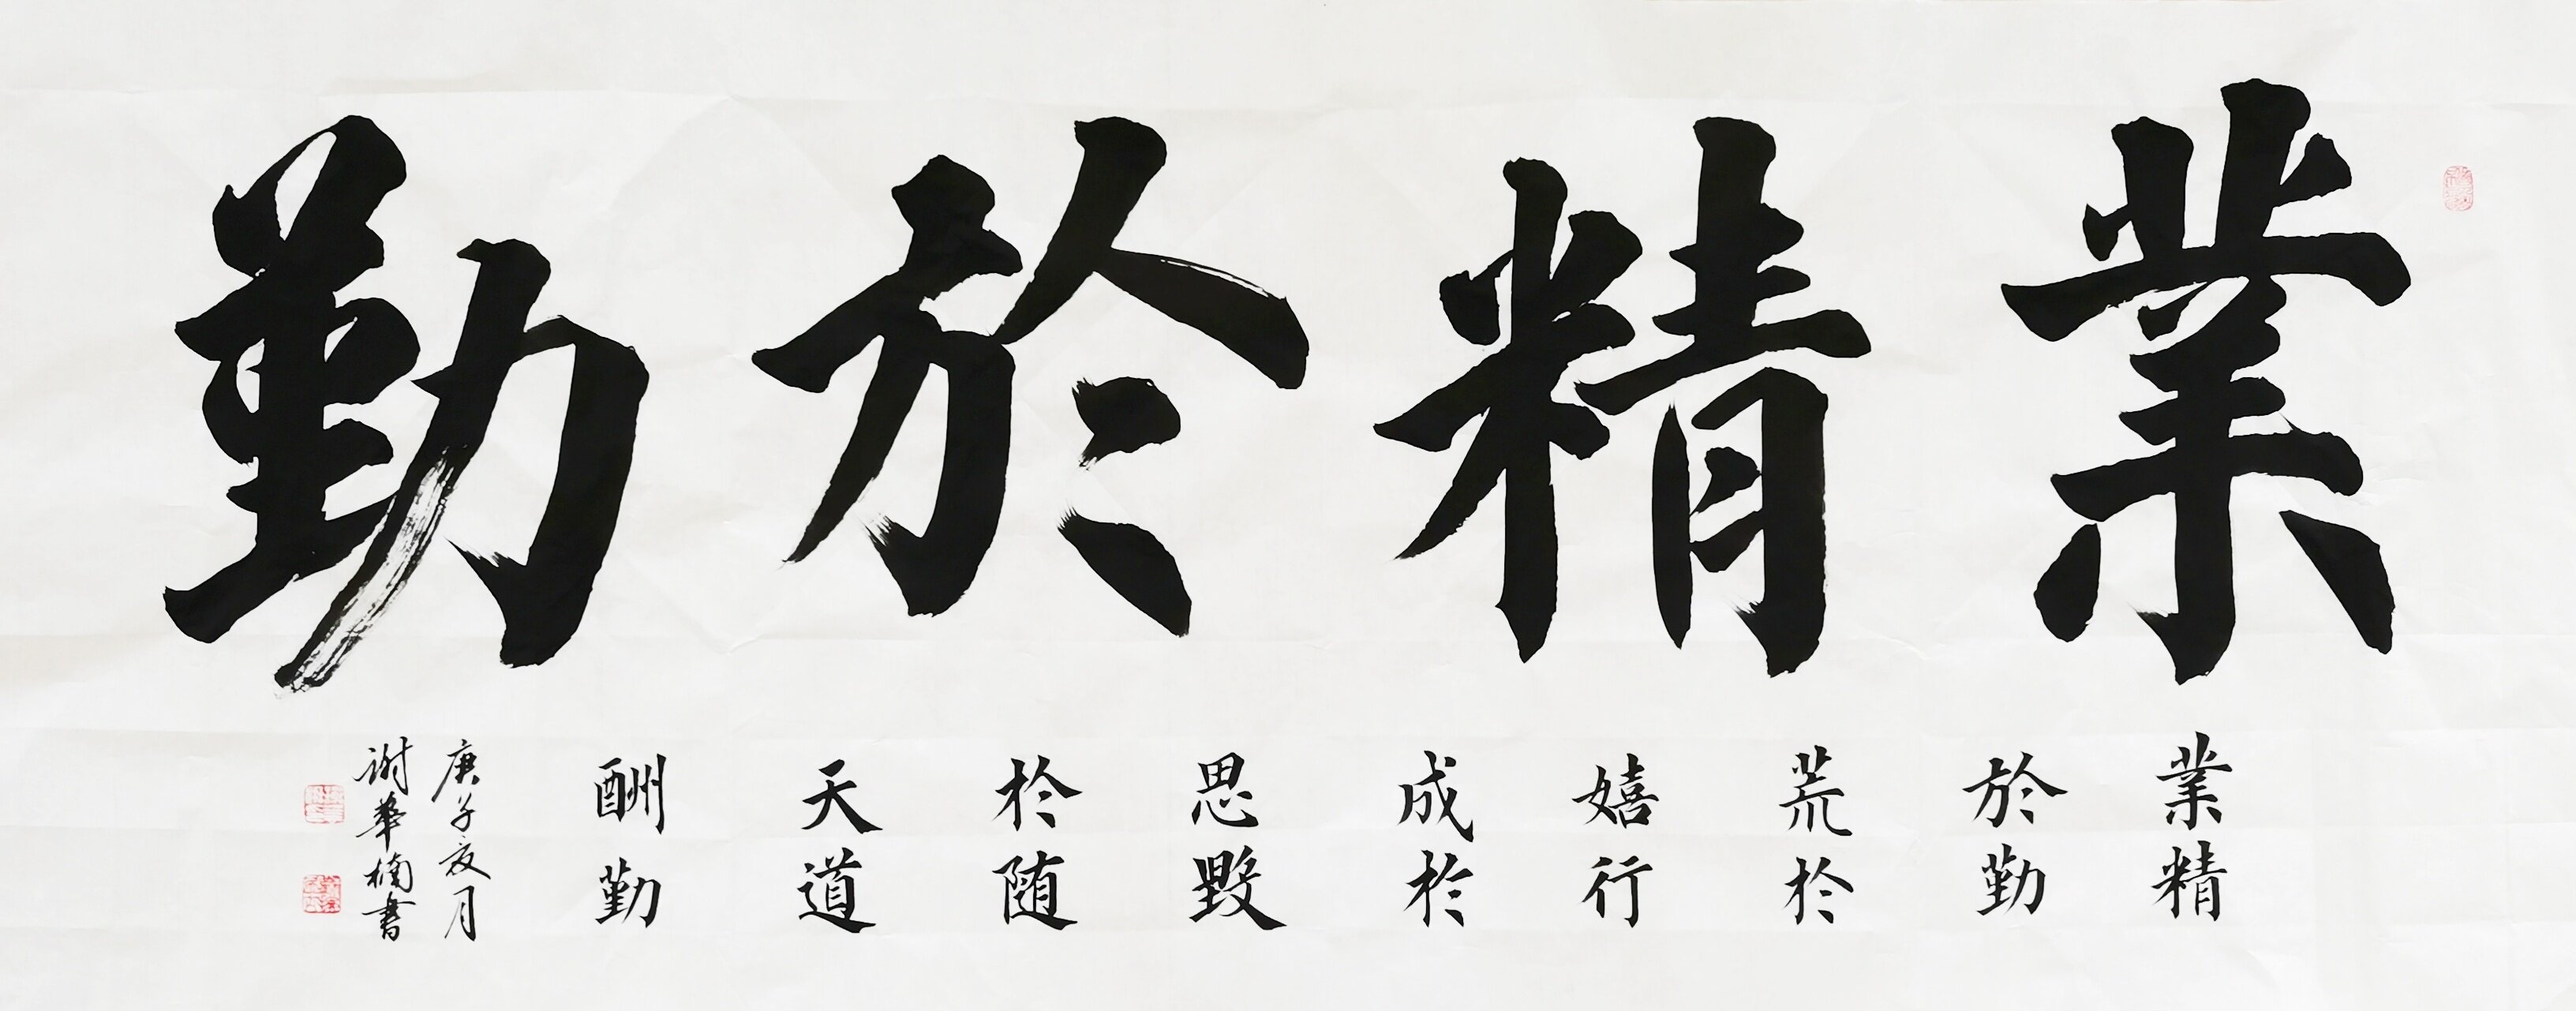 業精於勤
業精
於勤
荒於
嬉行
成於
思毀
於随
天道
酬勤
庚子夏月
謝華楠書